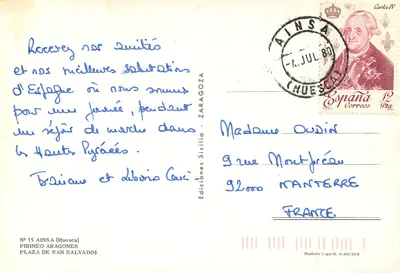 Recevez nos amitiés
et nos meilleures salutations
d'Espagne où nous sommes
pour une journée, pendant
un séjour de marche dans
les Hautes Pyrénées.
et
Nº 15 AINSA (Huesca)
PIRINEO ARAGONES
PLAZA DE SAN SALVADOR
Ediciones Sicilia - ZARAGOZA
AINSA
JUL. 80
(HUESCA)
Carlos IV
España
Correos
12
Pta
Madame OUDIN
9 rue Montfréau
92000 NANTERRE
FRANCE
Depósito Legal B.
XVII